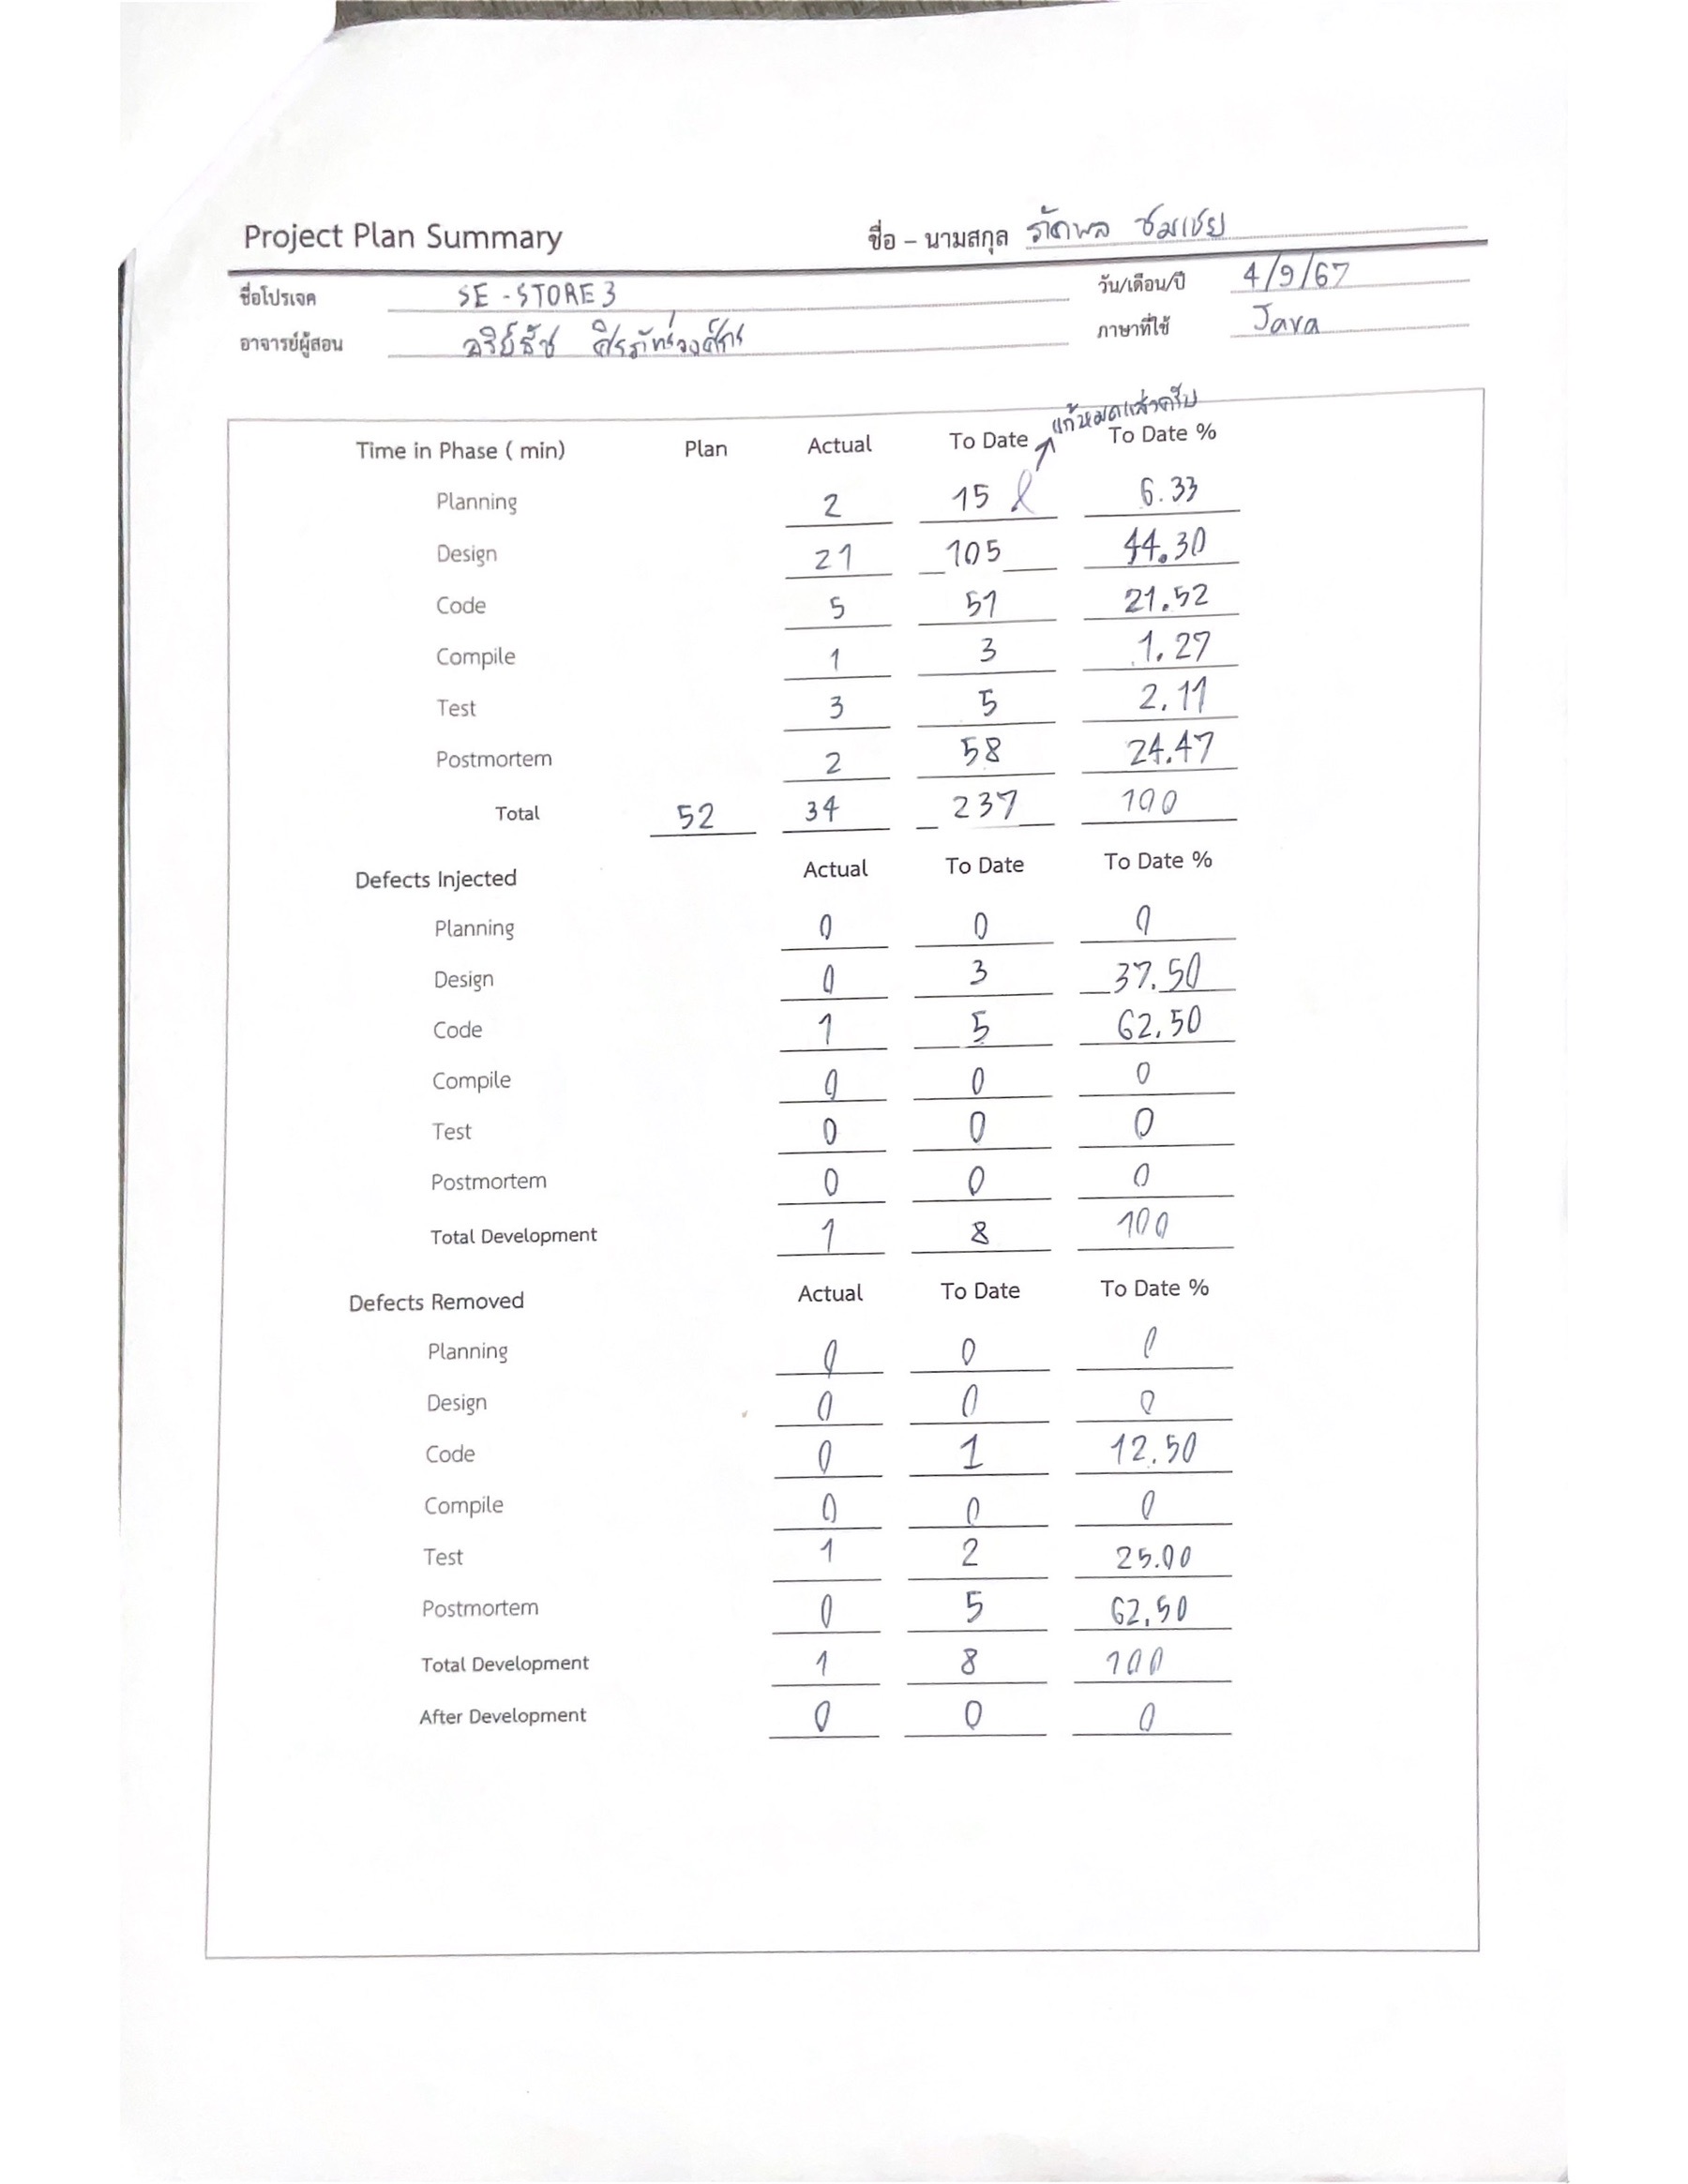 Project Plan Summary ชื่อ – นามสกุล
ชื่อโปรเจค SE - STORE 3 วัน/เดือน/ปี 4/9/67
อาจารย์ผู้สอน ภาษาที่ใช้ Java
แก้หมดแล้วครับ
Time in Phase ( min) Plan Actual To Date To Date %
Planning 2 15 6.33
Design 21 105 44.30
Code 5 51 21.52
Compile 1 3 1.27
Test 3 5 2.11
Postmortem 2 58 24.47
Total 52 34 237 100
Defects Injected Actual To Date To Date %
Planning 0 0 0
Design 0 3 37.50
Code 1 5 62.50
Compile 0 0 0
Test 0 0 0
Postmortem 0 0 0
Total Development 1 8 100
Defects Removed Actual To Date To Date %
Planning 0 0 0
Design 0 0 0
Code 0 1 12.50
Compile 0 0 0
Test 1 2 25.00
Postmortem 0 5 62.50
Total Development 1 8 100
After Development 0 0 0